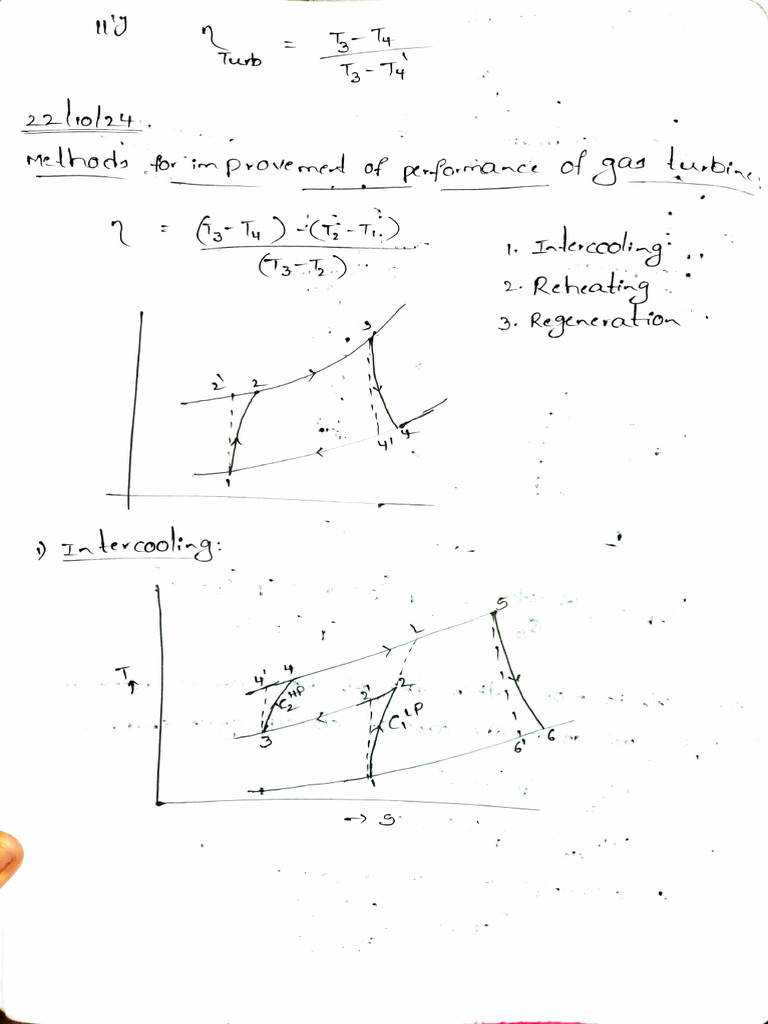 11'y
η Turb = T3 - T4 / T3 - T4'
22/10/24.
Methods for improvement of performance of gas turbine:
η = (T3 - T4) - (T2 - T1) / (T3 - T2)
1. Intercooling:
2. Reheating
3. Regeneration
3
2' 2
4' 4
1
1) Intercooling:
5
L
T
4' 4
C2 HP
2' 2
C1 LP
3
6' 6
1
→ S